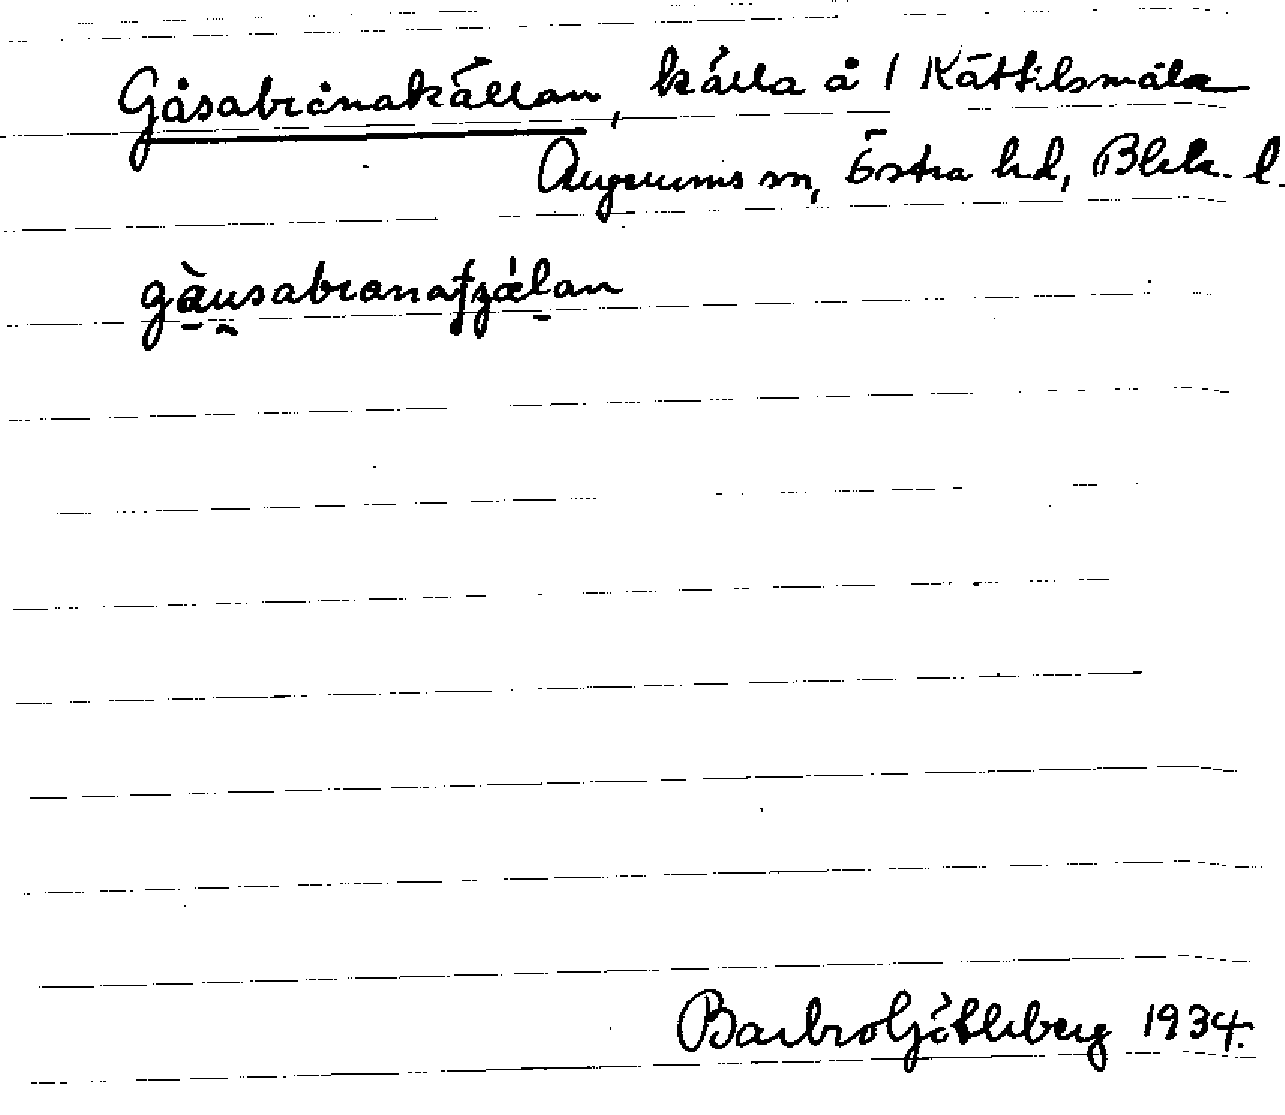 Gåsabrånakällan, källa å 1 Kättilsmåla
Augerums sn, Östra hd, Blek. l.
gàu̯sabranatʒǽlan
Barbro Götleberg 1934.